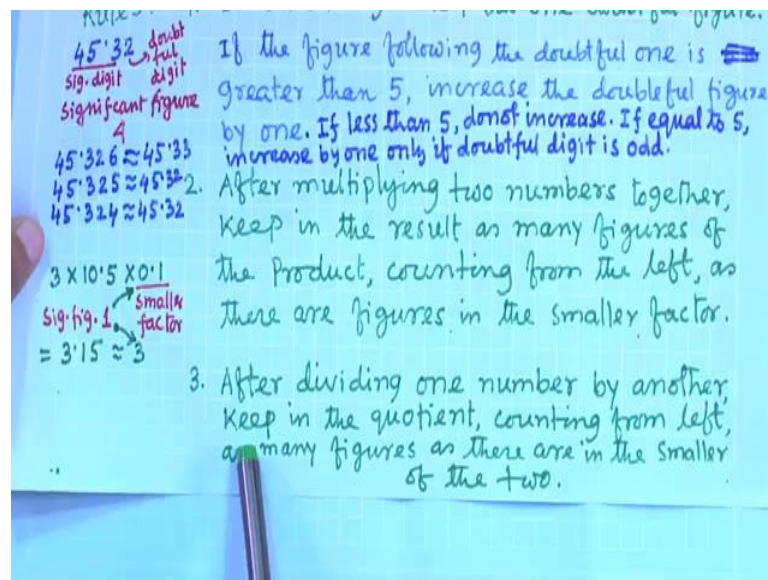 one doubtful figure.
45.32 doubt
ful
sig. digit digit
Significant figure
4
45.326 ≈ 45.33
45.325 ≈ 45.32
45.324 ≈ 45.32
3 X 10.5 X 0.1
Sig. fig. 1 smaller
factor
= 3.15 ≈ 3
If the figure following the doubtful one is
greater than 5, increase the doubleful figure
by one. If less than 5, donot increase. If equal to 5,
increase by one only if doubtful digit is odd.
2. After multiplying two numbers together,
Keep in the result as many figures of
the Product, counting from the left, as
there are figures in the smaller factor.
3. After dividing one number by another,
Keep in the quotient, counting from left,
as many figures as there are in the smaller
of the two.